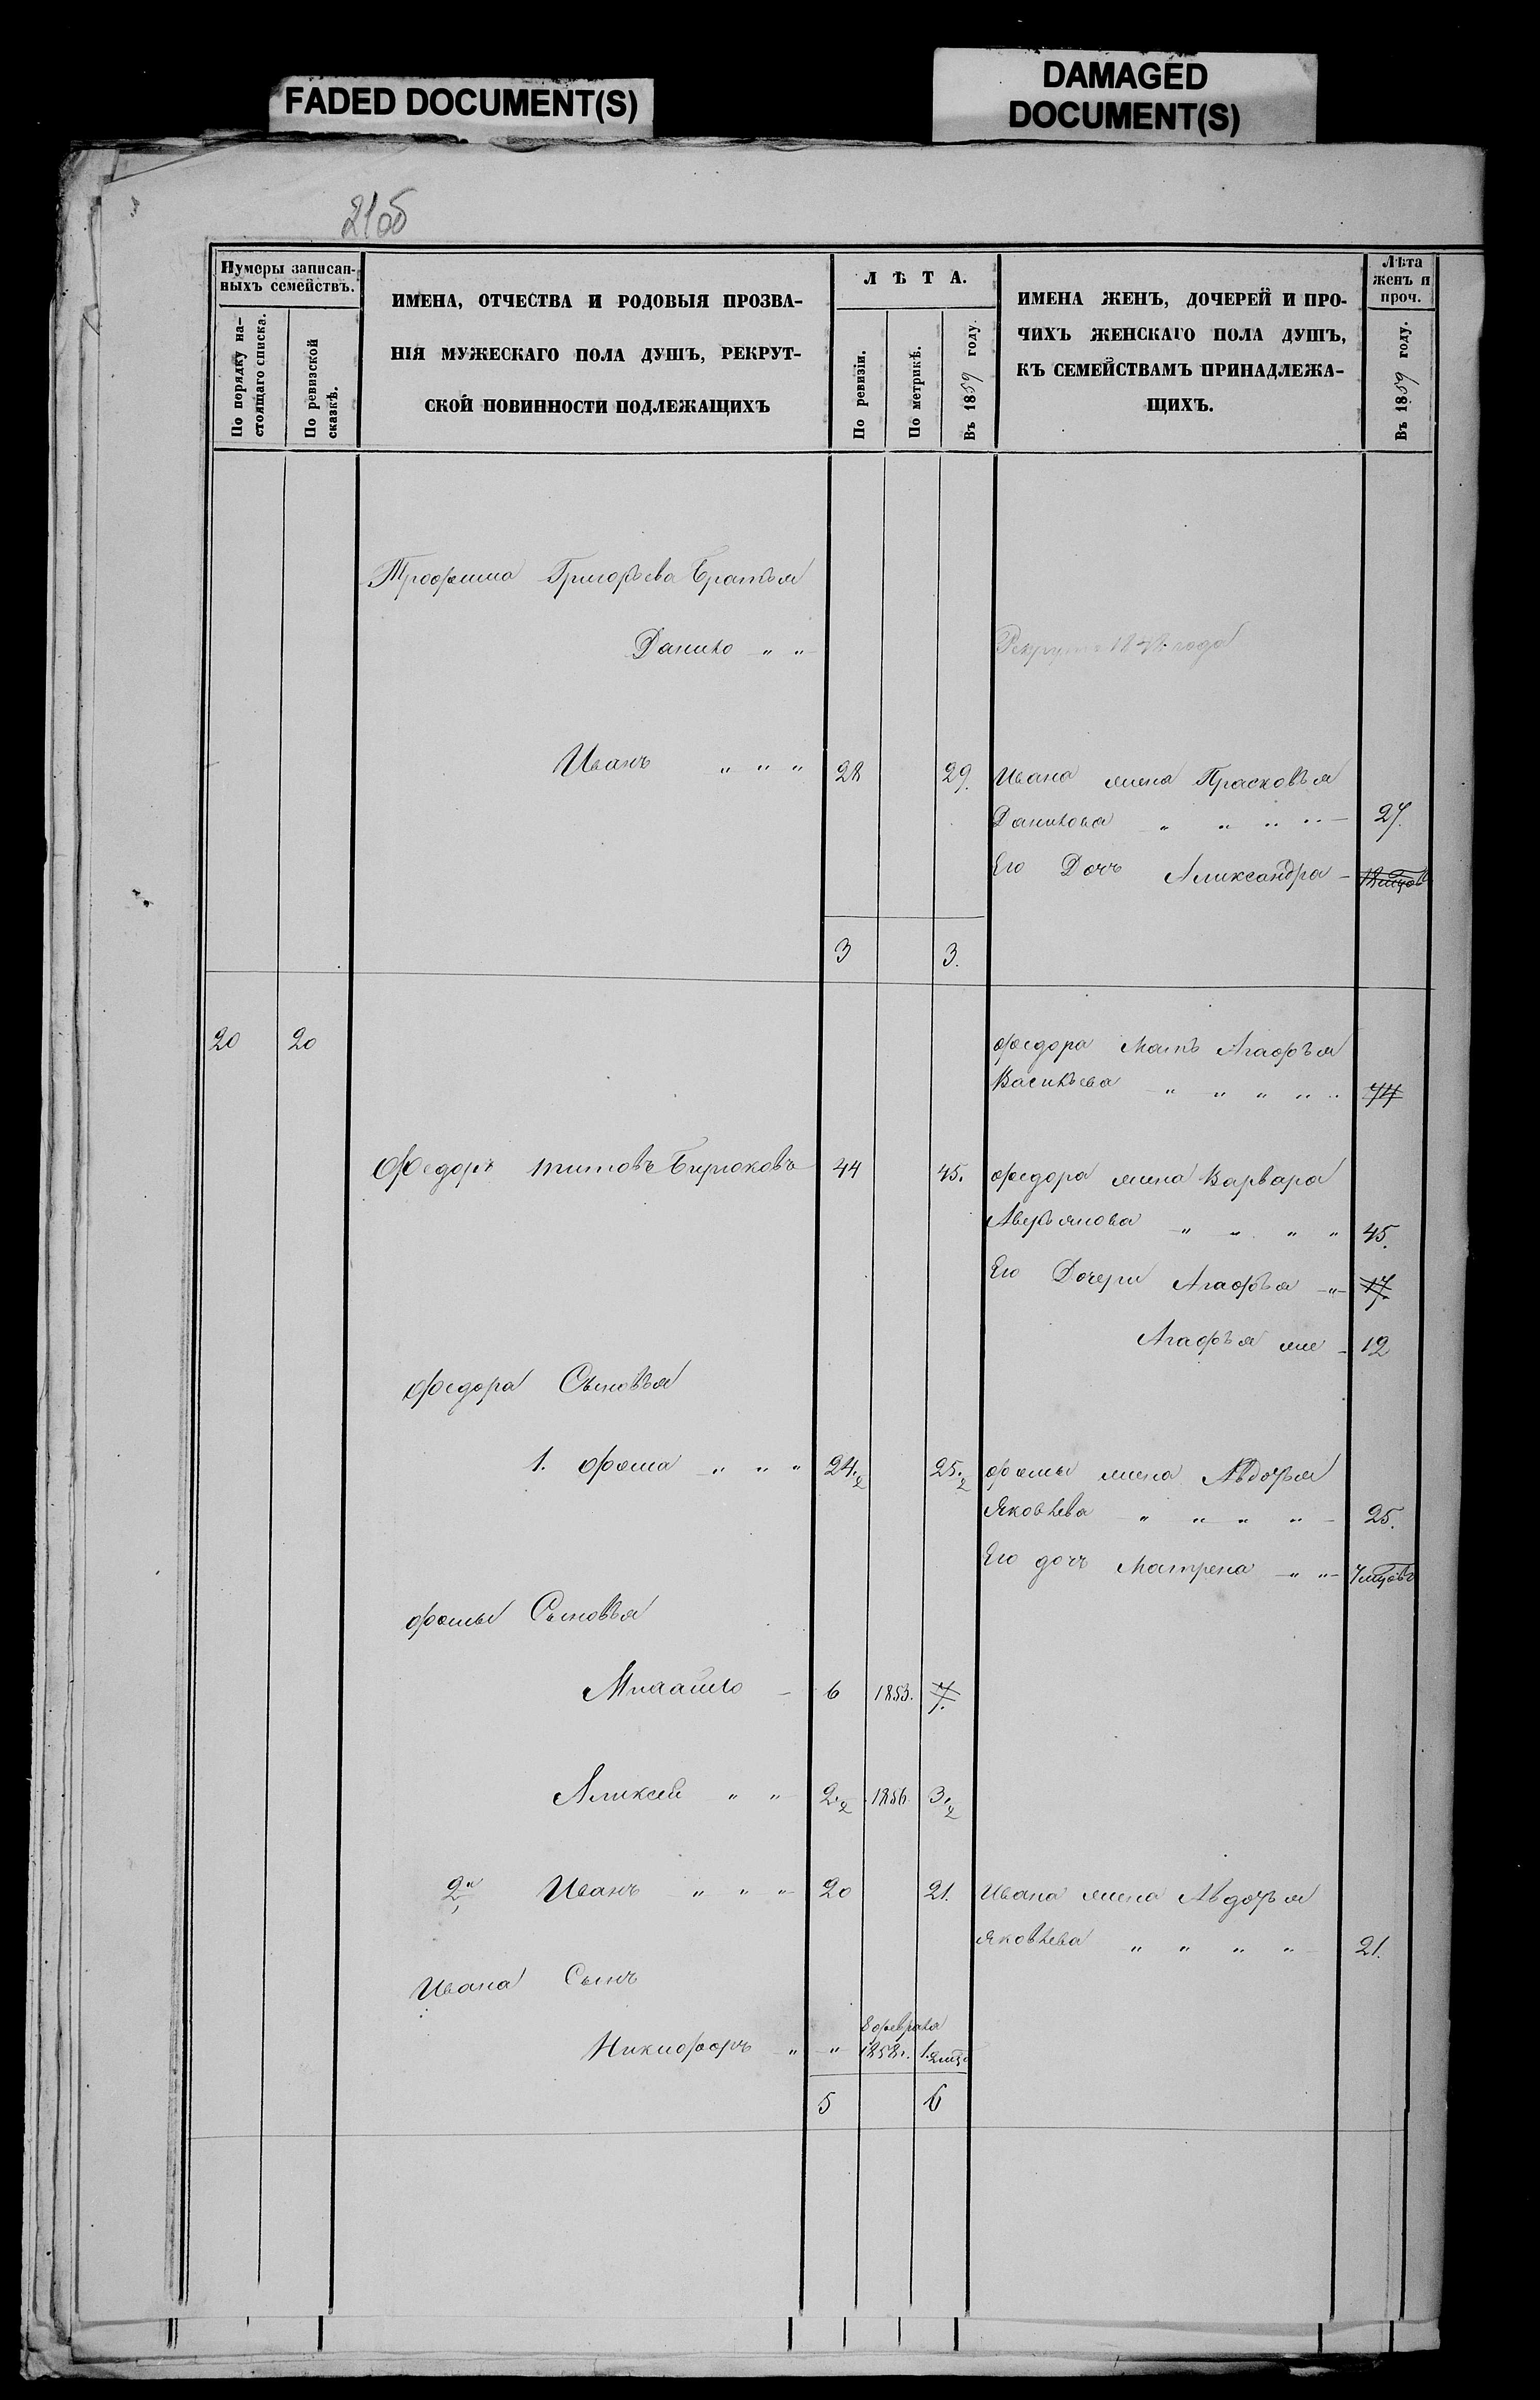 FADED DOCUMENT(S)
DAMAGED
DOCUMENT(S)
21об
Нумеры записан-
ныхъ семействъ.
По порядку на-
стоящаго списка.
По ревизской
сказкѣ.
ИМЕНА, ОТЧЕСТВА И РОДОВЫЯ ПРОЗВА-
НІЯ МУЖЕСКАГО ПОЛА ДУШЪ, РЕКРУТ-
СКОЙ ПОВИННОСТИ ПОДЛЕЖАЩИХЪ
ЛѢТА.
По ревизіи.
По метрикѣ.
Въ 1859 году.
ИМЕНА ЖЕНЪ, ДОЧЕРЕЙ И ПРО-
ЧИХЪ ЖЕНСКАГО ПОЛА ДУШЪ,
КЪ СЕМЕЙСТВАМЪ ПРИНАДЛЕЖА-
ЩИХЪ.
Лѣта
женъ и
проч.
Въ 1859 году.
Трофима Григорьева Братья
Данило " " Рекрутъ года
Иванъ " " " 28 29. Ивана жена Прасковья
Данилова " " " " 27.
Его Дочь Александра
3 3.
20 20 Федора Мать Агафья
Васильева " " " " " 74
Федоръ Титовъ Бирюковъ 44 45. Федора жена Варвара
Аверьянова " " " " 45.
Его Дочери Агафья " 17.
Агафья же 12
Федора Сыновья
1. Фома " " " 24.½ 25.½ Фомы жена Авдотья
Яковлева " " " " 25.
Его дочь Матрена " " 7 мцовъ
Фомы Сыновья
Михайло 6 1853. 7.
Алексей " " 2.½ 1856 3.½
2й Иванъ " " " 20 21. Ивана жена Авдотья
Яковлева " " " " 21.
Ивана Сынъ
8 февраля
Никифоръ " " 1858 г. 1.
5 6